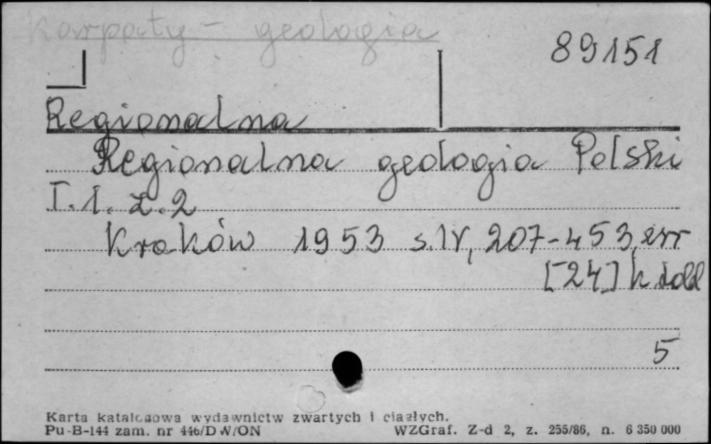 Karpaty - geologia
89151
Regionalna
Regionalna geologia Polski
T. 1. z. 2
Kraków 1953 s. IV, 207-453, err
[24] k
5
Karta katalogowa wydawnictw zwartych i ciągłych.
Pu-B-144 zam. nr 446/DW/ON WZGraf. Z-d 2, z. 255/86, n. 6 350 000